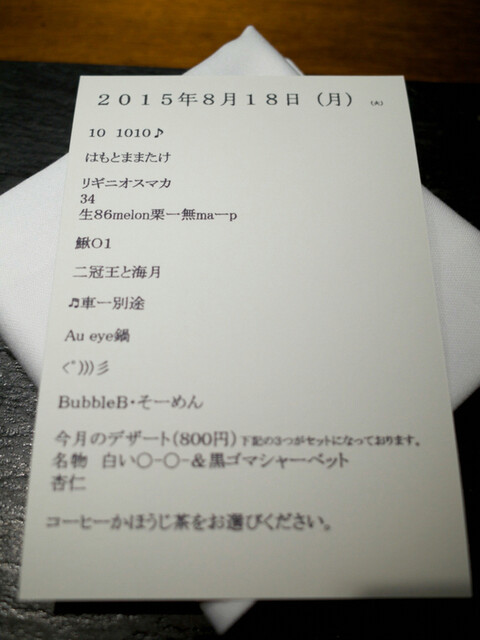 ２０１５年８月１８日（月）（火）
10 1010♪
はもとままたけ
リギニオスマカ
34
生86melon栗ー無maーp
鰍O1
二冠王と海月
♬車ー別途
Au eye鍋
<゜)))彡
BubbleB・そーめん
今月のデザート(800円)下記の3つがセットになっております。
名物 白い〇-〇-&黒ゴマシャーベット
杏仁
コーヒーかほうじ茶をお選びください。